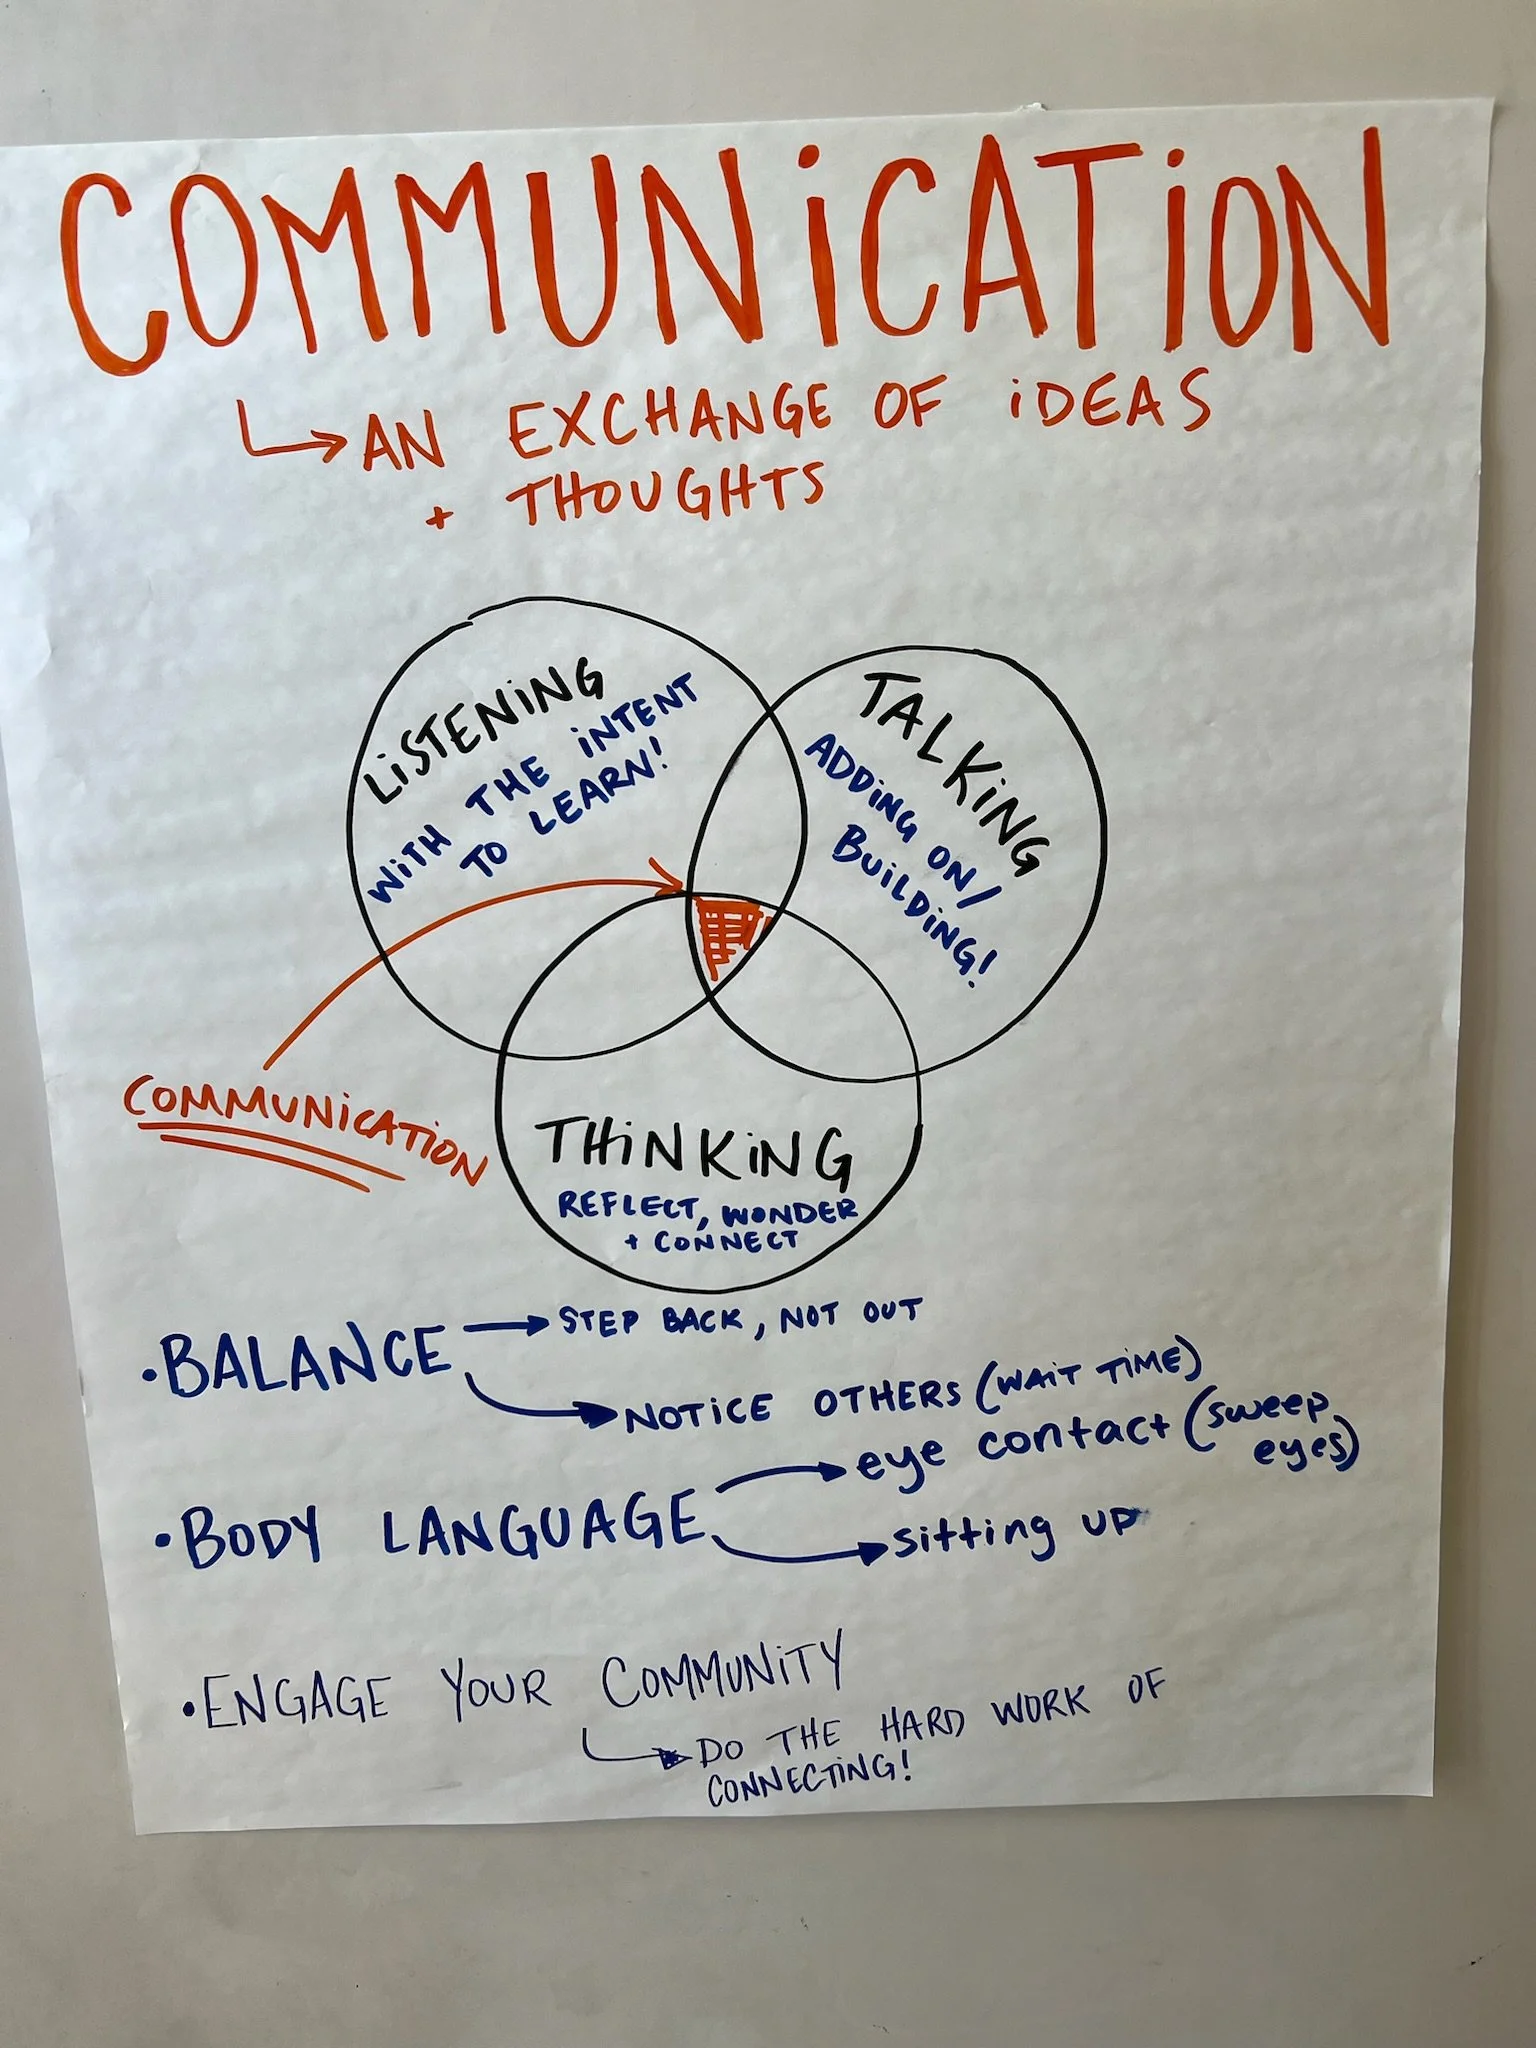 COMMUNiCATiON
AN EXCHANGE OF iDEAS
+ THOUGHTS
LiSTENiNG
WiTH THE iNTENT
TO LEARN!
TALKiNG
ADDiNG ON/
BUiLDiNG!
COMMUNiCATiON
THiNKiNG
REFLECT, WONDER
+ CONNECT
•BALANCE
STEP BACK, NOT OUT
NOTiCE OTHERS (WAiT TiME)
•BODY LANGUAGE
eye contact (sweep
eyes)
sitting up
•ENGAGE YOUR COMMUNiTY
DO THE HARD WORK OF
CONNECTiNG!